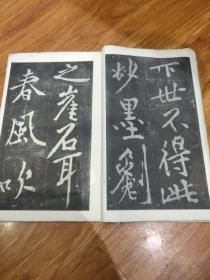 下世不得此
妙墨劖
之崖石耳
春風吹